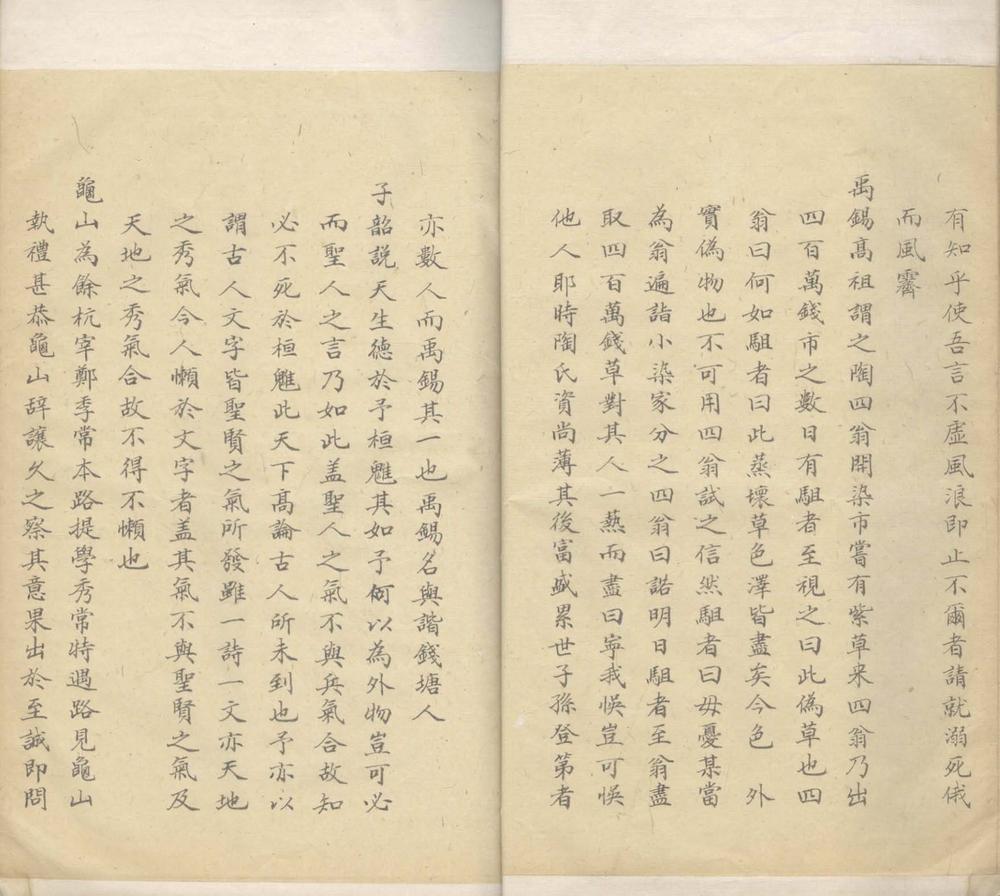 有知乎使吾言不虛風浪即止不爾者請就溺死俄
而風霽
禹錫髙祖謂之陶四翁開染市嘗有紫草来四翁乃出
四百萬錢市之數日有駔者至視之曰此偽草也四
翁曰何如駔者曰此蒸壞草色澤皆盡矣今色　外
實偽物也不可用四翁試之信然駔者曰毋憂某當
為翁遍詣小染家分之四翁曰諾明日駔者至翁盡
取四百萬錢草對其人一爇而盡曰寕我悞豈可悞
他人耶時陶氏資尚薄其後富盛累世子孫登第者
亦數人而禹錫其一也禹錫名與諧錢塘人
子韶説天生德於予桓魋其如予何以為外物豈可必
而聖人之言乃如此盖聖人之氣不與兵氣合故知
必不死於桓魋此天下髙論古人所未到也予亦以
謂古人文字皆聖賢之氣所發雖一詩一文亦天地
之秀氣今人懶於文字者盖其氣不與聖賢之氣及
天地之秀氣合故不得不懶也
龜山為餘杭宰鄭季常本路提學秀常特遇路見龜山
執禮甚恭龜山辞讓久之察其意果出於至誠即問